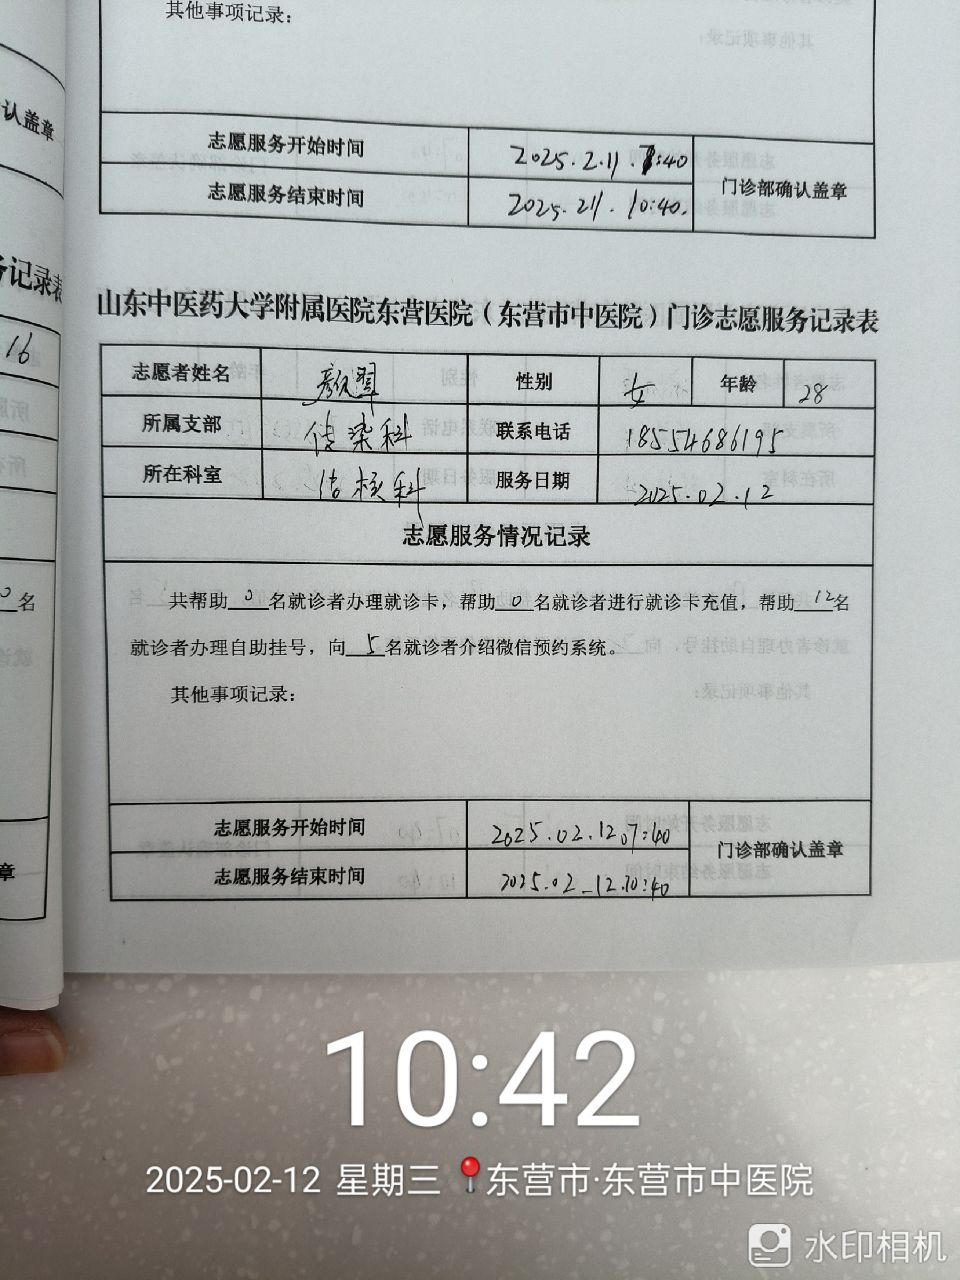 其他事项记录：
认盖章
志愿服务开始时间 2025.2.11.7:40
门诊部确认盖章
志愿服务结束时间 2025.2.11.10:40.
务记录表
山东中医药大学附属医院东营医院（东营市中医院）门诊志愿服务记录表
16
志愿者姓名 性别 女 年龄 28
所属支部 传染科 联系电话 18554686195
所在科室 结核科 服务日期 2025.02.12
志愿服务情况记录
名
共帮助0名就诊者办理就诊卡，帮助0名就诊者进行就诊卡充值，帮助12名
就诊者办理自助挂号，向5名就诊者介绍微信预约系统。
其他事项记录：
志愿服务开始时间 2025.02.12 07:40
门诊部确认盖章
章
志愿服务结束时间 2025.02.12.10:40
10:42
2025-02-12 星期三 东营市·东营市中医院
水印相机